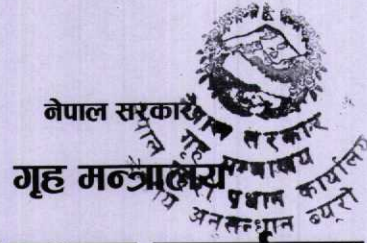 नेपाल सरकार
गृह मन्त्रालय
नेपाल सरकार
गृह मन्त्रालय
प्रधान कार्यालय
अनुसन्धान ब्यूरो